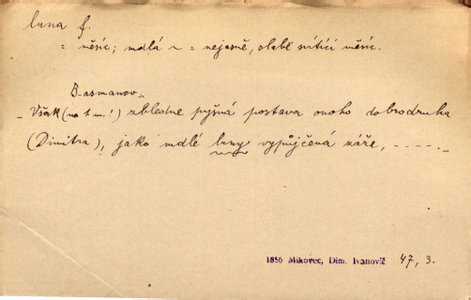 luna f.
= měsíc; mdlá ~ = nejasně, slabě svítící měsíc.
Basmanov
- Však (na t m!) zbledne pyšná postava onoho dobrodruha
(Dimitra), jako mdlé luny vypůjčená záře, - - - - . -
1856 Mikovec, Dim. Ivanovič 47, 3.